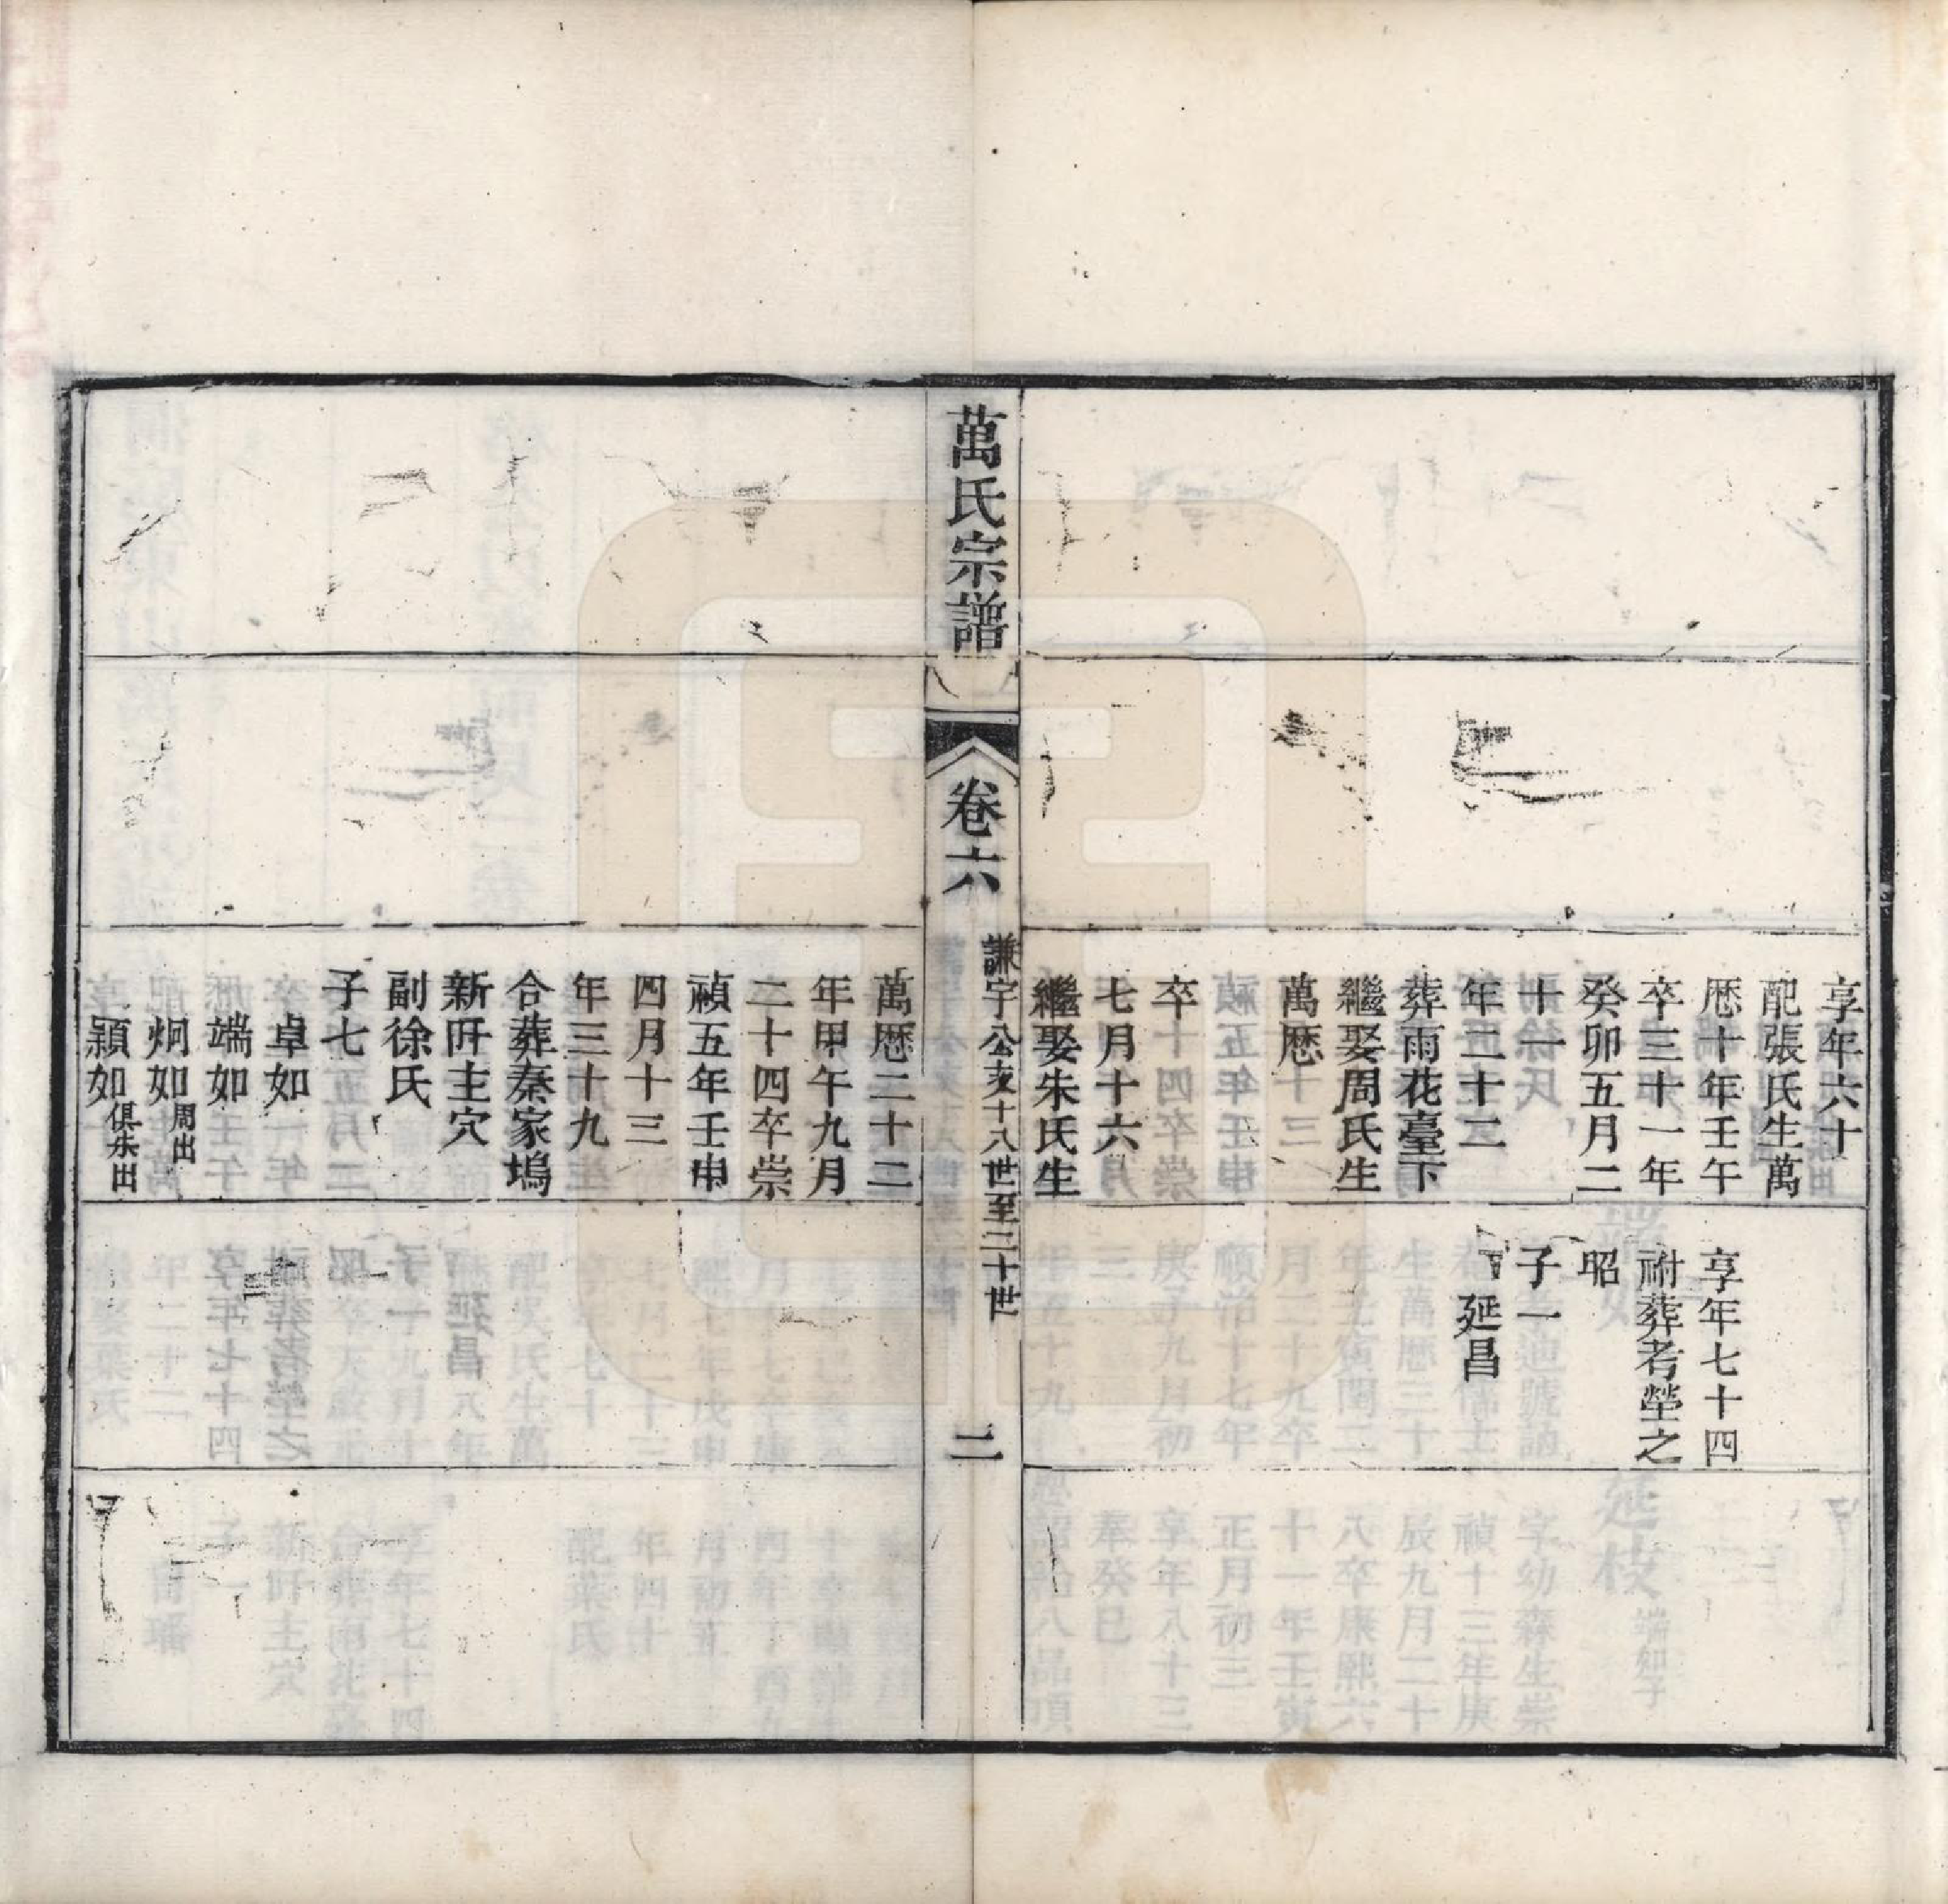 享年六十
配張氏生萬
厯十年壬午
卒三十一年
癸卯五月二
十一
年二十二
葬雨花臺下
繼娶周氏生
萬厯
卒
七月十六
繼娶朱氏生
享年七十四
祔葬者塋之
昭
子一
延昌
萬氏宗譜
卷六
謙宇公支十八世至二十世
二
萬厯二十二
年甲午九月
二十四卒崇
禎五年壬申
四月十三
年三十九
合葬秦家塢
新阡主穴
副徐氏
子七
卓如
端如
炯如周出
穎如俱朱出